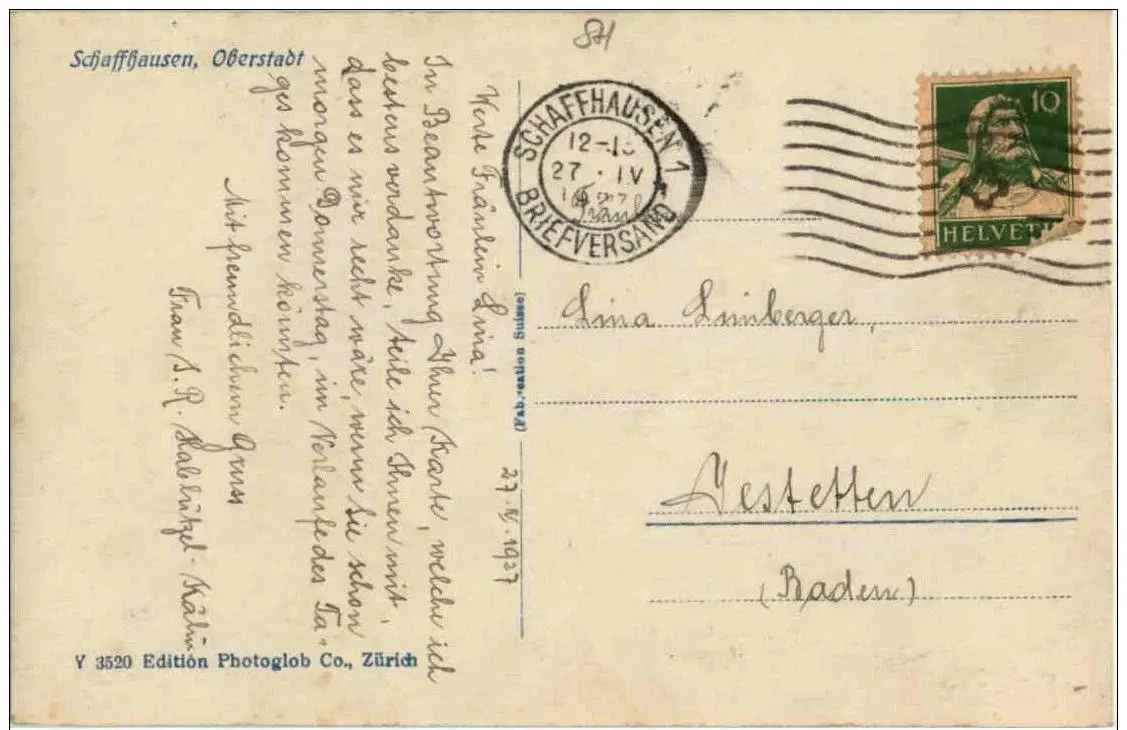 SH
Schaffhausen, Oberstadt
27. IV. 1927
Werte Fräulein Lina!
In Beantwortung Ihrer Karte, welche ich
bestens verdanke, teile ich Ihnen mit,
dass es mir recht wäre, wenn Sie schon
morgen Donnerstag, im Verlaufe des Ta-
ges kommen könnten.
Mit freundlichem Gruss
Frau S. R. Habützel-Kälin
Y 3520 Edition Photoglob Co., Zürich
(Fabrication Suisse)
SCHAFFHAUSEN 1
12-
27. IV
1927
BRIEFVERSAND
10
HELVETIA
Fräul.
Lina Limberger,
Jestetten
(Baden)